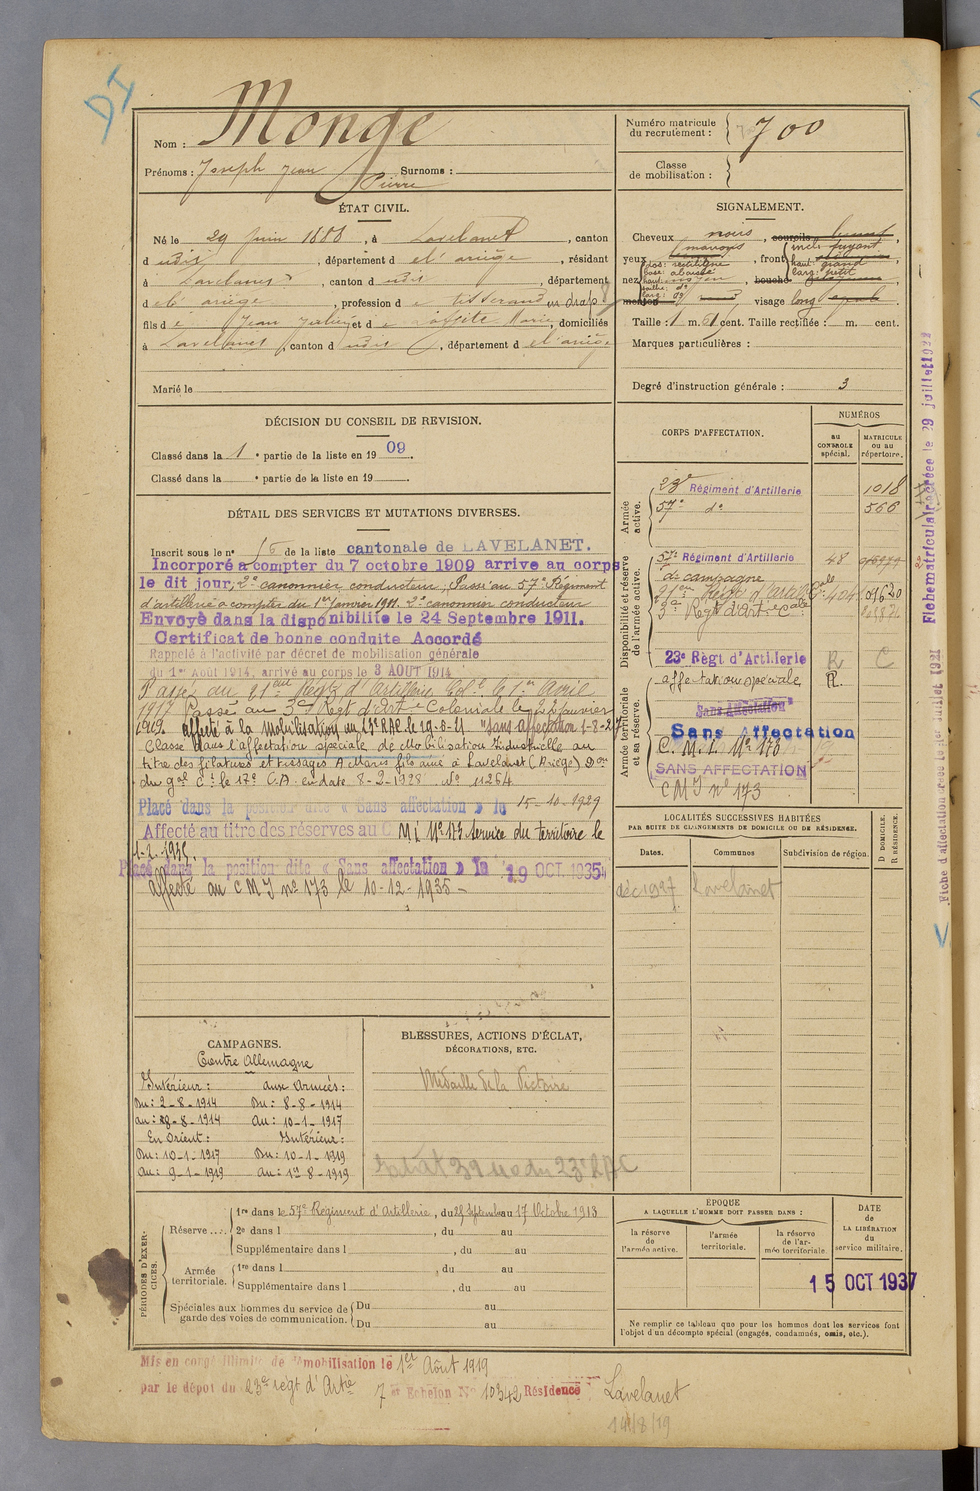 DI
Nom : Monge
Prénoms : Joseph Jean Pierre Surnoms :
Numéro matricule du recrutement : 700
Classe de mobilisation :
ÉTAT CIVIL.
Né le 29 juin 1888, à Lavelanet, canton
d udis, département d el' ariège, résidant
à Lavelanet, canton d udis, département
d el' ariège, profession d e tisserand en drap
fils d e Jean et d e Marie, domiciliés
à Lavelanet, canton d udis, département d el' ariège
Marié le
SIGNALEMENT.
Cheveux noirs, sourcils
yeux marrons, front incl: fuyant haut: grand larg: petit
nez dos: rectiligne base: abaissé haut: moyen, bouche
menton visage long
Taille : 1 m. 61 cent. Taille rectifiée : m. cent.
Marques particulières :
Degré d'instruction générale : 3
DÉCISION DU CONSEIL DE REVISION.
Classé dans la 1e partie de la liste en 1909
Classé dans la e partie de la liste en 19
DÉTAIL DES SERVICES ET MUTATIONS DIVERSES.
Inscrit sous le n° 16 de la liste cantonale de LAVELANET.
Incorporé à compter du 7 octobre 1909 arrive au corps
le dit jour, 2e canonnier conducteur, Passé au 57e Régiment
d'artillerie à compter du 1er Janvier 1911. 2e canonnier conducteur
Envoyé dans la disponibilité le 24 Septembre 1911.
Certificat de bonne conduite Accordé
Rappelé à l'activité par décret de mobilisation générale
du 1er Août 1914, arrivé au corps le 3 AOUT 1914
Passé au 21eme Régt d'Artillerie Colle le 1er Avril
1917 Passé au 3e Regt d'Art-ie Coloniale le 22 Janvier
1919. affecté à la mobilisation au 23e RAC le 19-6-21 "sans affectation 1-8-27
Classé dans l'affectation spéciale de Mobilisation Industrielle au
titre des filatures et tissages A Maris fils ainé à Lavelanet (Ariège) Don
du gal Ct le 17e C.A. en date 8-2-1928. No 11264
Placé dans la position dite « Sans affectation » le 15-10-1929
Affecté au titre des réserves au C M I No 173 Service du territoire le
Placé dans la position dite « Sans affectation » le 19 OCT. 1935
Affecté au C M I no 173 le 10-12-1935 -
CORPS D'AFFECTATION.
NUMÉROS
au CONTROLE spécial.
MATRICULE ou au répertoire.
Armée active.
23e Régiment d'Artillerie 1018
57e do 566
Disponibilité et réserve de l'armée active.
57e Régiment d'Artillerie 48
de campagne
21eme Regt d'Artillie Cale 404 01620
3e Regt d'Art-ie Cale
23e Règt d'Artillerie R C
Armée territoriale et sa réserve.
affectation spéciale R.
Sans Affectation
Sans Affectation
C. M. I. No 173
SANS AFFECTATION
C M I no 173
LOCALITÉS SUCCESSIVES HABITÉES
PAR SUITE DE CHANGEMENTS DE DOMICILE OU DE RÉSIDENCE.
Dates. Communes Subdivision de région. D DOMICILE. R RÉSIDENCE.
déc 1927 Lavelanet
CAMPAGNES.
Contre Allemagne
Intérieur : aux Armées :
Du : 2-8-1914 Du : 8-8-1914
au : 8-8-1914 au : 10-1-1917
En Orient : Intérieur :
Du : 10-1-1917 Du : 10-1-1919
Au : 9-1-1919 au : 1er-8-1919
BLESSURES, ACTIONS D'ÉCLAT,
DÉCORATIONS, ETC.
Médaille de la Victoire
du 23e RAC
PÉRIODES D'EXERCICES.
Réserve....
1re dans le 57e Régiment d'Artillerie, du 28 Septembre au 17 Octobre 1913
2e dans l , du au
Supplémentaire dans l , du au
Armée territoriale.
1re dans l , du au
Supplémentaire dans l , du au
Spéciales aux hommes du service de garde des voies de communication.
Du au
Du au
ÉPOQUE
A LAQUELLE L'HOMME DOIT PASSER DANS :
la réserve de l'armée active.
l'armée territoriale.
la réserve de l'armée territoriale
DATE de LA LIBÉRATION du service militaire.
15 OCT 1937
Ne remplir ce tableau que pour les hommes dont les services font
l'objet d'un décompte spécial (engagés, condamnés, omis, etc.).
Mis en congé illimité de démobilisation le 1er Août 1919
par le dépot du 23e regt d'Artie 7e Echelon No 10342 Résidence : Lavelanet
14/8/19
Fiche matriculaire créée le 29 juillet 1921
Fiche d'affectation créée le juillet 1921